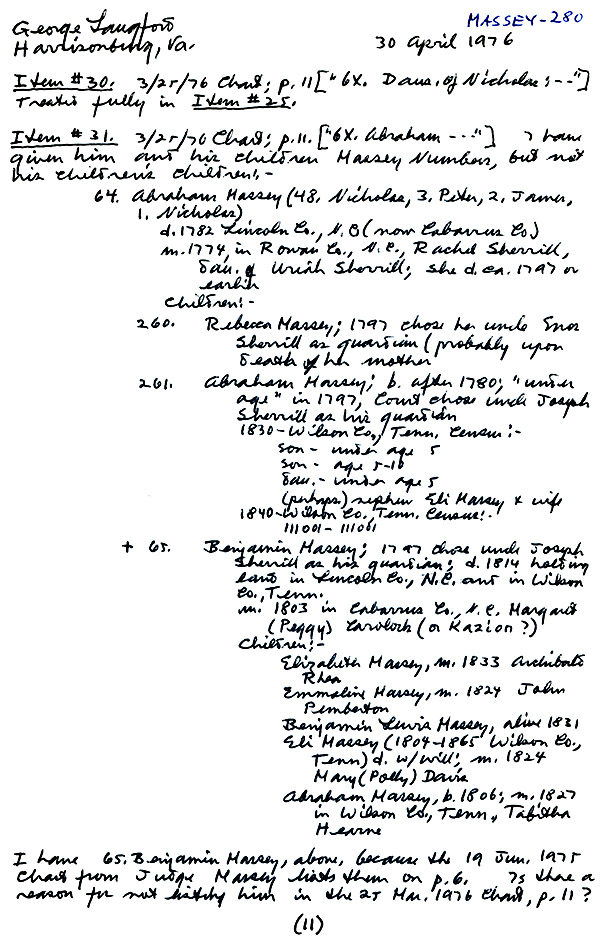 George Langford
MASSEY-280
Harrisonburg, Va.
30 April 1976
Item #30. 3/25/76 Chart; p. 11 ["6X. Daus. of Nicholas: --"]
Treated fully in Item #25.
Item #31. 3/25/76 Chart; p.11. ["6X. Abraham ---"] I have
given him and his children Massey Numbers, but not
his children's children:-
64. Abraham Massey (48. Nicholas, 3. Peter, 2. James,
1. Nicholas)
d. 1782 Lincoln Co., N.C (now Cabarrus Co.)
m. 1774, in Rowan Co., N.C., Rachel Sherrill,
dau. of Uriah Sherrill; she d. ca. 1797 or
earlier
Children:-
260. Rebecca Massey; 1797 chose her uncle Enos
Sherrill as guardian (probably upon
death of her mother
261. Abraham Massey; b. after 1780; "under
age" in 1797, Court chose uncle Joseph
Sherrill as his guardian
1830-Wilson Co., Tenn. Census:-
son - under age 5
son - age 5-10
dau. - under age 5
(perhaps) nephew Eli Massey & wife
1840-Wilson Co., Tenn. Census:-
111001-111001
+ 65. Benjamin Massey; 1797 chose uncle Joseph
Sherrill as his guardian; d. 1814 holding
land in Lincoln Co., N.C. and in Wilson
Co., Tenn.
m. 1803 in Cabarrus Co., N.C. Margaret
(Peggy) Carlock (or Kazion?)
Children:-
Elizabeth Massey, m. 1833 Archibald
Rhea
Emmaline Massey, m. 1824 John
Pemberton
Benjamin Lewis Massey, alive 1831
Eli Massey (1804-1865 Wilson Co.,
Tenn) d. w/will; m. 1824
Mary (Polly) Davis
Abraham Massey, b. 1806; m. 1827
in Wilson Co., Tenn., Tabitha
Hearne
I have 65. Benjamin Massey, above, because the 19 Jun. 1975
Chart from Judge Massey lists them on p. 6. Is there a
reason for not listing him in the 25 Mar. 1976 Chart, p. 11?
(11)